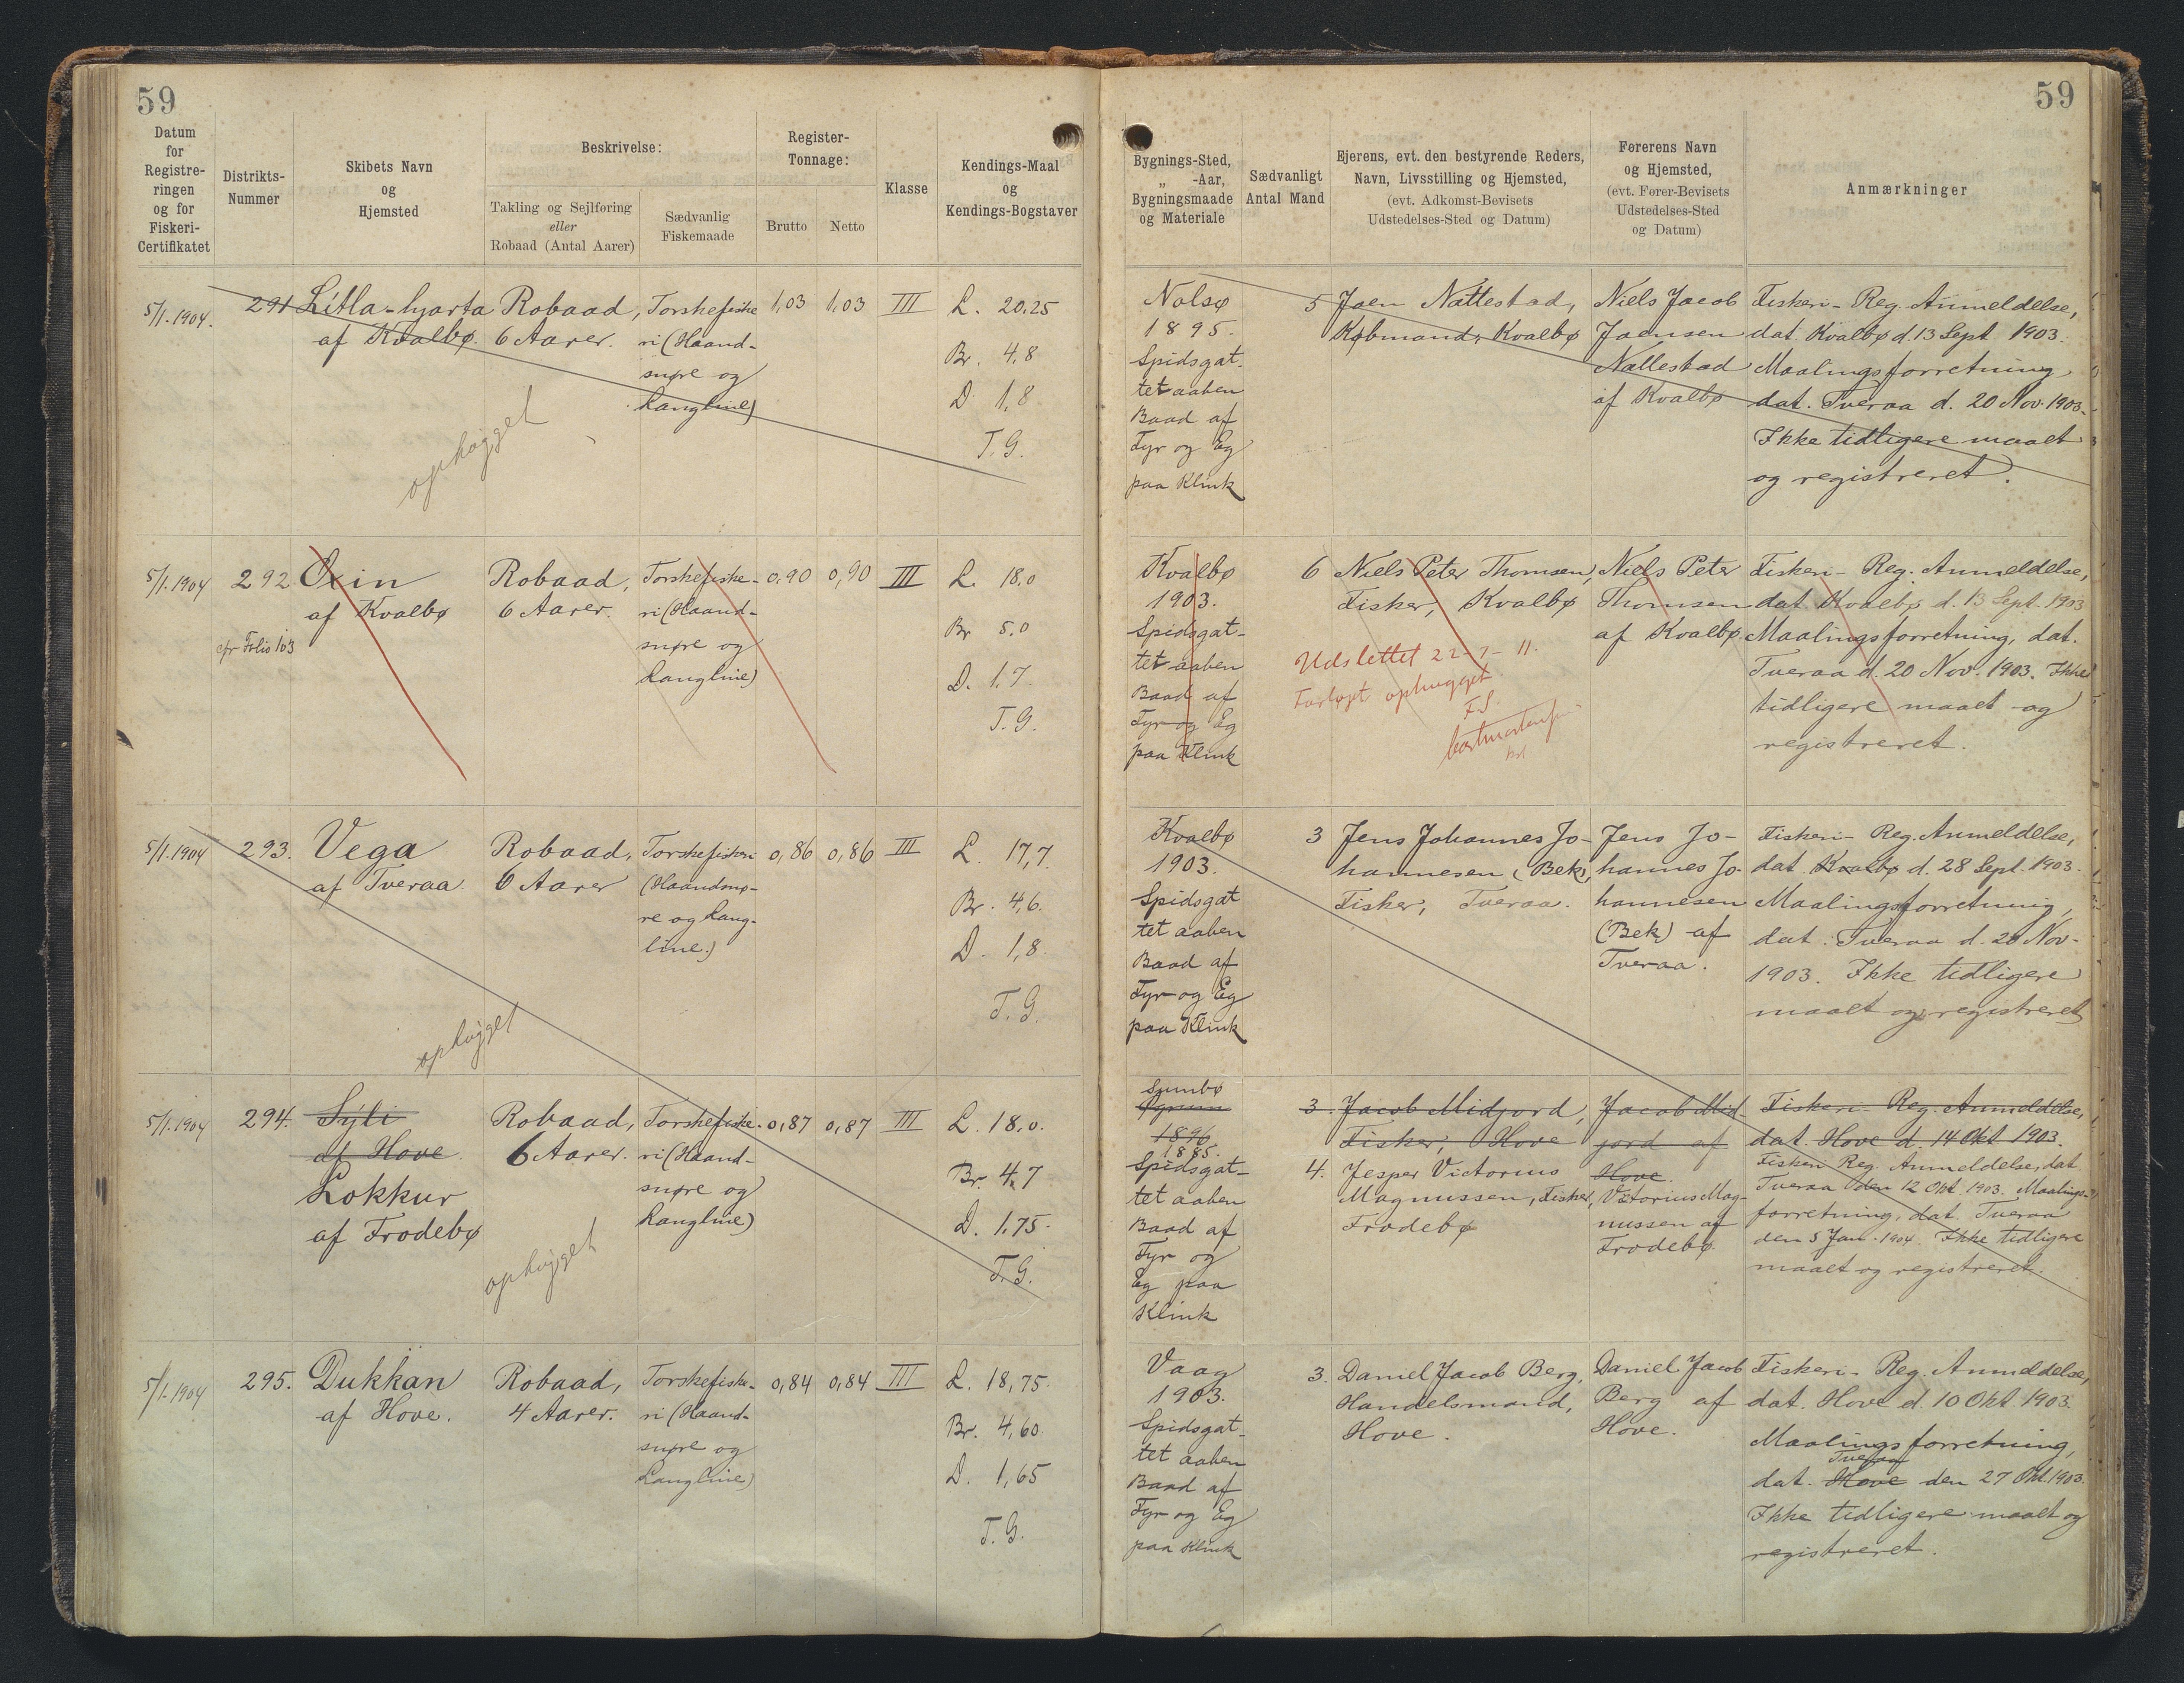 59
59
Datum
for
Registre-
ringen
og for
Fiskeri-
Certifikatet
Distrikts-
Nummer
Skibets Navn
og
Hjemsted
Beskrivelse:
Takling og Sejlføring
eller
Robaad (Antal Aarer)
Sædvanlig
Fiskemaade
Register-
Tonnage:
Brutto
Netto
Klasse
Kendings-Maal
og
Kendings-Bogstaver
Bygnings-Sted,
„ -Aar,
Bygningsmaade
og Materiale
Sædvanligt
Antal Mand
Ejerens, evt. den bestyrende Reders,
Navn, Livsstilling og Hjemsted,
(evt. Adkomst-Bevisets
Udstedelses-Sted og Datum)
Førerens Navn
og Hjemsted,
(evt. Fører-Bevisets
Udstedelses-Sted
og Datum)
Anmærkninger
5/1. 1904.
291
Litla-hjarta
af Kvalbø.
Robaad,
6 Aarer.
Torskefiske
ri (Haand-
snøre og
Langline)
1,03
1,03
III
L. 20,25
Br. 4,8
D. 1,8
T.G.
ophøgget
Nolsø
1895.
Spidsgat-
tet aaben
Baad af
Fyr og Eg
paa Klink
5
Joen Nattestad,
Købmand, Kvalbø
Niels Jacob
Joensen
Nattestad
af Kvalbø
Fiskeri-Reg. Anmeldelse,
dat. Kvalbø d. 13 Sept. 1903.
Maalingsforretning
dat. Tveraa d. 20 Nov. 1903.
Ikke tidligere maalt
og registreret.
5/1. 1904
292
cfr Folio 103
Oxin
af Kvalbø
Robaad,
6 Aarer.
Torskefiske-
ri (Haand-
snøre og
Langline)
0,90
0,90
III
L. 18,0
Br. 5,0
D. 1,7
T.G.
Kvalbø
1903.
Spidsgat-
tet aaben
Baad af
Fyr og Eg
paa Klink
6
Niels Peter Thomsen,
Fisker, Kvalbø
Udslettet 22-7-11.
ophugget
Niels Peter
Thomsen
af Kvalbø.
Fiskeri-Reg. Anmeldelse,
dat. Kvalbø d. 13 Sept. 1903
Maalingsforretning, dat.
Tveraa d. 20 Nov. 1903. Ikke
tidligere maalt og
registreret.
5/1. 1904
293.
Vega
af Tveraa.
Robaad,
6 Aarer
Torskefiskeri
(Haandsnø-
re og Lang-
line.)
0,86
0,86
III
L. 17,7
Br. 4,6.
D. 1,8
T.G.
ophøgget
Kvalbø
1903.
Spidsgat
tet aaben
Baad af
Fyr og Eg
paa Klink
3
Jens Johannes Jo-
hannesen (Bek),
Fisker, Tveraa.
Jens Jo-
hannes Jo-
hannesen
(Bek) af
Tveraa.
Fiskeri-Reg. Anmeldelse,
dat. Kvalbø d. 28 Sept. 1903.
Maalingsforretning,
dat. Tveraa d. 20 Nov-
1903. Ikke tidligere
maalt og registreret
5/1. 1904
294.
Sýli
af Hove
Lokkur
af Frodebø
Robaad,
6 Aarer.
Torskefiske-
ri (Haand-
snøre og
Langline)
0,87
0,87
III
L. 18,0.
Br. 4,7
D. 1,75.
T.G.
ophøgget
Sumbø
1896.
1885.
Spidsgat-
tet aaben
Baad af
Fyr og
Eg paa
Klink
3.
Jacob Midjord,
Fisker, Hove
4.
Jesper Victorius
Magnussen, Fisker,
Frodebø
Jacob Mid-
jord af
Hove.
Victorius Mag-
nussen af
Frodebø.
Fiskeri-Reg. Anmeldelse,
dat. Hove d. 14 Okt 1903.
Fiskeri Reg. Anmeldelse, dat.
Tveraa den 12 Okt. 1903. Maalings-
forretning, dat. Tveraa
den 5 Jan. 1904. Ikke tidligere
maalt og registreret.
5/1. 1904
295.
Dukkan
af Hove.
Robaad,
4 Aarer.
Torskefiske-
ri (Haand-
snøre og
Langline)
0,84
0,84
III
L. 18,75.
Br. 4,60
D. 1,65
T.G.
Vaag
1903.
Spidsgat-
tet aaben
Baad af
Fyr og Eg
paa Klink
3.
Daniel Jacob Berg,
Handelsmand,
Hove.
Daniel Jacob
Berg af
Hove.
Fiskeri-Reg. Anmeldelse,
dat. Hove d. 10 Okt 1903.
Maalingsforretning,
Tveraa
dat. Hove den 27 Okt. 1903.
Ikke tidligere maalt og
registreret.